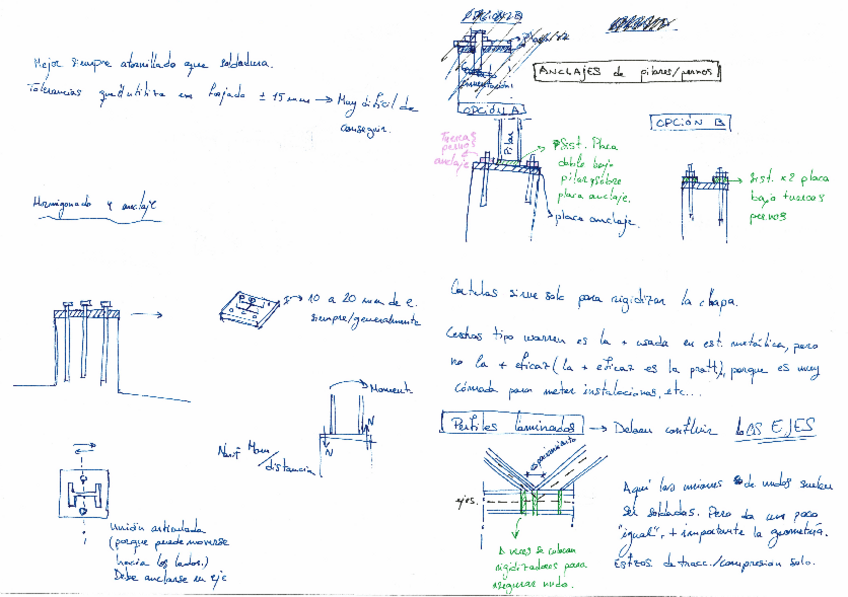 Mejor siempre atornillado que soldadura.
Tolerancias que utiliza en bajado ± 15 mm → Muy difícil de
conseguir.
Hormigonado y anclaje
10 a 20 mm de e.
siempre/generalmente
Momento
N
N
N = Mom/
distancia
Unión articulada
(porque puede moverse
hacia los lados.)
Debe anclarse en eje
OPCIÓN B
ANCLAJES de pilares/pernos
OPCIÓN A
Pilar
Tuercas
pernos
anclaje
Sist. Placa
doble bajo
pilar y sobre
placa anclaje.
placa anclaje.
OPCIÓN B
Sist. x2 placa
bajo tuercas
pernos
Cartelas sirve solo para rigidizar la chapa.
Cerchas tipo warren es la + usada en est. metálica, pero
no la + eficaz (la + eficaz es la pratt), porque es muy
cómoda para meter instalaciones, etc...
Perfiles laminados → Deben confluir LOS EJES
ejes.
A veces se colocan
rigidizadores para
asegurar nudo.
Aquí las uniones de nudos suelen
ser soldados. Pero da un poco
"igual", + importante la geometría.
Esfzos de tracc./compresión solo.